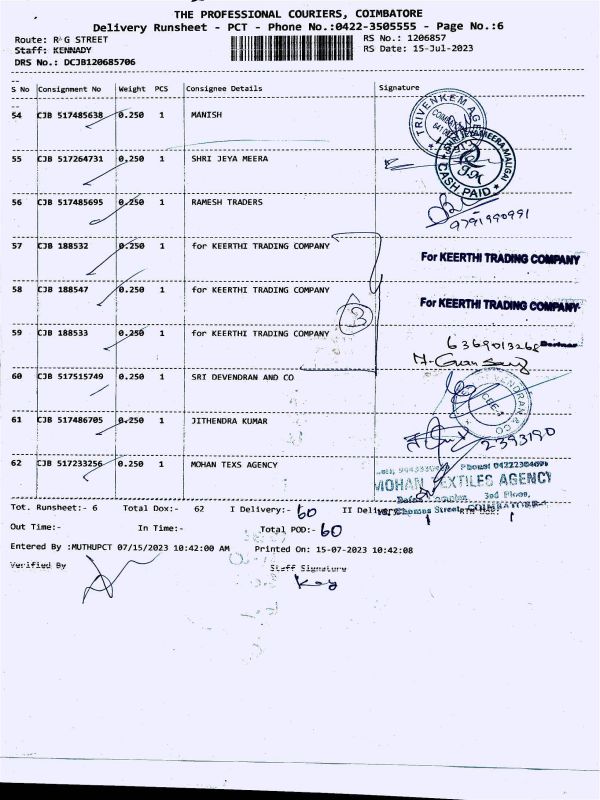 THE PROFESSIONAL COURIERS, COIMBATORE
Delivery Runsheet - PCT - Phone No.:0422-3505555 - Page No.:6
Route: R G STREET RS No.: 1206857
Staff: KENNADY RS Date: 15-Jul-2023
DRS No.: DCJB120685706
S No Consignment No Weight PCS Consignee Details Signature
54 CJB 517485638 0.250 1 MANISH
TRIVENKEM
55 CJB 517264731 0.250 1 SHRI JEYA MEERA
CASH PAID
56 CJB 517485695 0.250 1 RAMESH TRADERS
9791990991
57 CJB 188532 0.250 1 for KEERTHI TRADING COMPANY For KEERTHI TRADING COMPANY
58 CJB 188547 0.250 1 for KEERTHI TRADING COMPANY For KEERTHI TRADING COMPANY
3
59 CJB 188533 0.250 1 for KEERTHI TRADING COMPANY 6369013268
60 CJB 517515749 0.250 1 SRI DEVENDRAN AND CO
61 CJB 517486705 0.250 1 JITHENDRA KUMAR
2393190
62 CJB 517233256 0.250 1 MOHAN TEXS AGENCY
MOHAN TEXTILES AGENCY
3rd Floor,
Thomas Street, COIMBATORE-1
Tot. Runsheet:- 6 Total Dox:- 62 I Delivery:- 60 II Delivery:-
Out Time:- In Time:- Total POD:- 60
Entered By :MUTHUPCT 07/15/2023 10:42:00 AM Printed On: 15-07-2023 10:42:08
Verified By Staff Signature